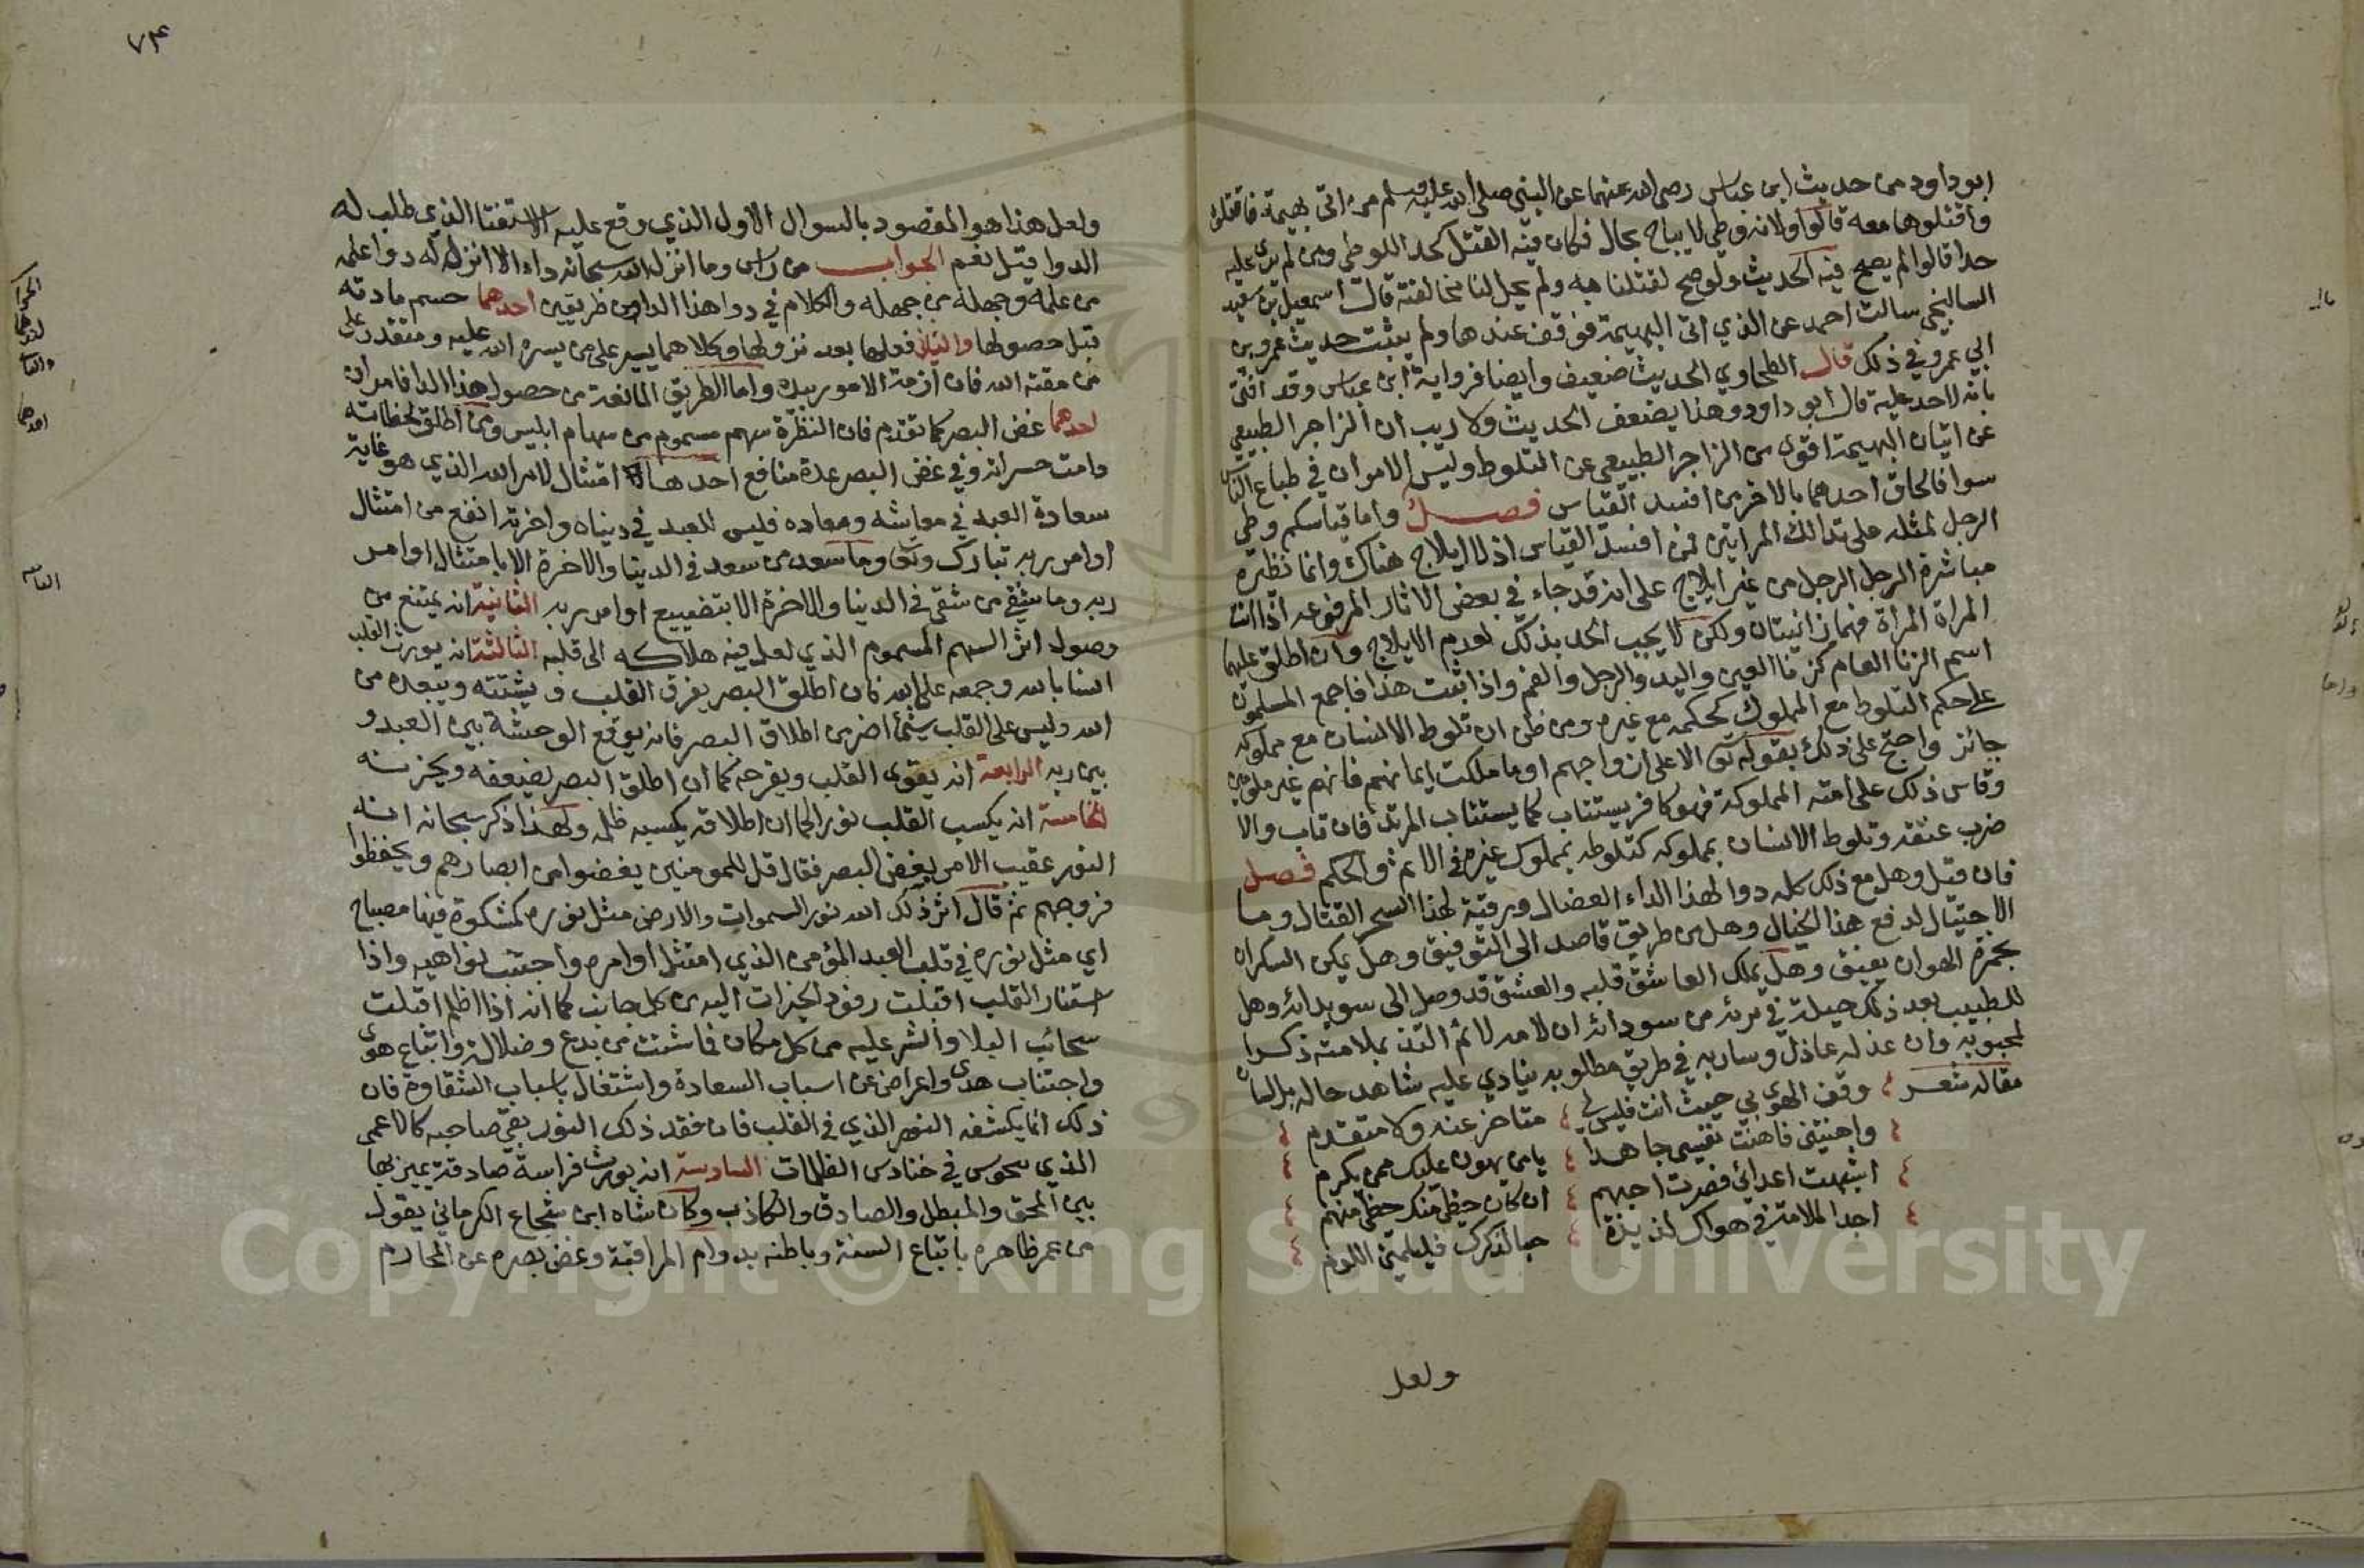 ابوداود من حديث ابن عباس رضي الله عنهما عن النبي صلى الله عليه وسلم من اتى بهيمة فاقتلوه
واقتلوها معه قالوا ولانه وطي لا يباح بحال فكان فيه القتل كحد اللوطي ومن لم ير عليه
حدا قالوا لم يصح فيه الحديث ولو صح لقتلنا به ولم يحل لنا مخالفته قال اسمعيل بن سعيد
السالنجي سالت احمد عن الذي اتى البهيمة فوقف عندها ولم يثبت حديث عمرو بن
ابي عمرو في ذلك قال الطحاوي الحديث ضعيف وايضا فرواية ابن عباس وقد افتى
بانه لاحد عليه قال ابو داود وهذا يضعف الحديث ولا ريب ان الزاجر الطبيعي
عن اتيان البهيمة اقوى من الزاجر الطبيعي عن التلوط وليس الامران في طباع الناس
سوا فالحاق احدهما بالاخر من افسد القياس فصل واما قياسكم وطي
الرجل لمثله على تدالك المراتين فمن افسد القياس اذ لا ايلاج هناك وانما نظيره
مباشرة الرجل الرجل من غير ايلاج على انه قد جاء في بعض الاثار المرفوعه اذا اتت
المراة المراة فهما زانيتان ولكن لا يجب الحد بذلك لعدم الايلاج وان اطلق عليهما
اسم الزنا العام كزنا العين واليد والرجل والفم واذا ثبت هذا فاجمع المسلمون
على حكم التلوط مع المملوك كحكمه مع غيره ومن ظن ان تلوط الانسان مع مملوكه
جائز واحتج على ذلك بقوله تعالى الا على ازواجهم او ما ملكت ايمانهم فانهم غير ملومين
وقاس ذلك على امته المملوكة فهو كافر يستتاب كما يستتاب المرتد فان تاب والا
ضرب عنقه وتلوط الانسان بمملوكه كتلوطه بمملوك غيره في الاثم والحكم فصل
فان قيل وهل مع ذلك كله دوا لهذا الداء العضال ورقية لهذا السحر القتال وما
الاحتيال لدفع هذا الخيال وهل من طريق قاصد الى التوفيق وهل يمكن السكران
بخمرة الهوى ان يفيق وهل يملك العاشق قلبه والعشق قد وصل الى سويدائه وهل
للطبيب بعد ذلك حيلة في برئه من سودائه ان لامه لائم التذ بملامته ذكرا
لمحبوبه وان عذله عاذل وساربه في طريق مطلوبه ينادي عليه شاهد حاله بلسان
مقاله شعر وقف الهوى بي حيث انت فليس لي متاخر عنه ولا متقدم
واهنتني فاهنت نفسي جاهدا يا من يهون عليك ممن يكرم
اشبهت اعدائي فصرت احبهم ان كان حظي منك حظي منهم
اجد الملامة في هواك لذيذة حبا لذكرك فليلمني اللوم
ولعل
٧٤
ولعل هذا هو المقصود بالسوال الاول الذي وقع عليه الاستفتا الذي طلب له
الدوا قيل نعم الجواب من راس وما انزل الله سبحانه داء الا انزل له دوا علمه
من علمه وجهله من جهله والكلام في دوا هذا الدا من طريقين احدهما حسم مادته
قبل حصولها والثاني قلعها بعد نزولها وكلاهما يسير على من يسره الله عليه ومتعذر على
من مقته الله فان ازمة الامور بيده واما الطريق المانعة من حصول هذا الدا فامران
احدهما غض البصر كما تقدم فان النظرة سهم مسموم من سهام ابليس ومن اطلق لحظاته
دامت حسراته وفي غض البصر عدة منافع احدها انه امتثال لامر الله الذي هو غاية
سعادة العبد في معاشه ومعاده فليس للعبد في دنياه واخرته انفع من امتثال
اوامر ربه تبارك وتعالى وما سعد من سعد في الدنيا والاخرة الا بامتثال اوامر
ربه وما شقي من شقي في الدنيا والاخرة الا بتضييع اوامر ربه الثانية انه يمنع من
وصول اثر السهم المسموم الذي لعل فيه هلاكه الى قلبه الثالثة انه يورث القلب
انسا بالله وجمعه على الله فان اطلاق البصر يفرق القلب ويشتته ويبعده من
الله وليس على القلب شيئا اضر من اطلاق البصر فانه يوقع الوحشة بين العبد و
بين ربه الرابعة انه يقوي القلب ويفرحه كما ان اطلاق البصر يضعفه ويحزنه
الخامسة انه يكسب القلب نورا كما ان اطلاقه يكسبه ظلمه ولهذا ذكر سبحانه اية
النور عقيب الامر بغض البصر فقال قل للمومنين يغضوا من ابصارهم ويحفظوا
فروجهم ثم قال اثر ذلك الله نور السموات والارض مثل نوره كمشكوة فيها مصباح
اي مثل نوره في قلب العبد المؤمن الذي امتثل اوامره واجتنب نواهيه واذا
استنار القلب اقبلت وفود الخيرات اليه من كل جانب كما انه اذا اظلم اقبلت
سحائب البلا والشر عليه من كل مكان فما شئت من بدع وضلالة واتباع هوى
واجتناب هدى واعراض عن اسباب السعادة واشتغال باسباب الشقاوة فان
ذلك انما يكشفه النور الذي في القلب فان فقد ذلك النور بقي صاحبه كالاعمى
الذي يحوس في حنادس الظلمات السادسة انه يورث فراسة صادقة يميز بها
بين المحق والمبطل والصادق والكاذب وكان شاه ابن شجاع الكرماني يقول
من عمر ظاهره باتباع السنة وباطنه بدوام المراقبة وغض بصره عن المحارم
Copyright © King Saud University